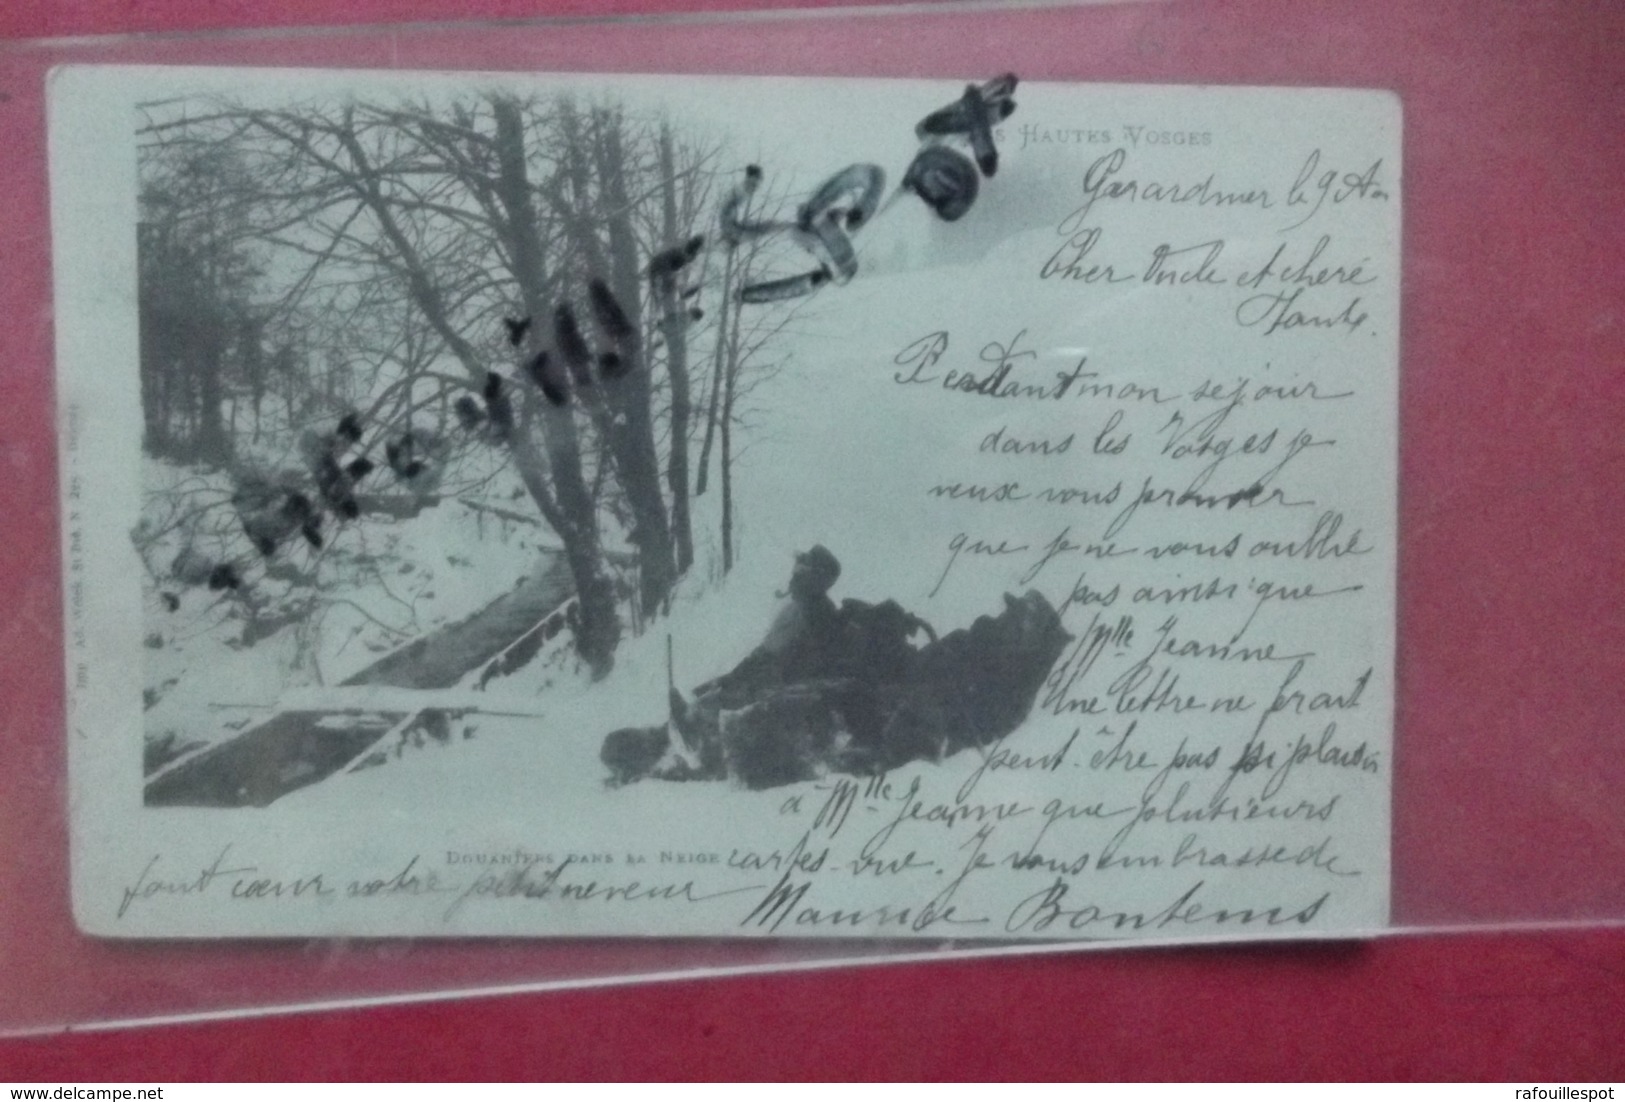 S HAUTES VOSGES
Gérardmer le 9
Cher Oncle et chère
Tante.
Pendant mon séjour
dans les Vosges je
veux vous prouver
que je ne vous oublie
pas ainsi que
Mlle Jeanne
Une lettre ne ferait
peut-être pas si plaisir
à Mlle Jeanne que plusieurs
DOUANIERS DANS LA NEIGE
cartes-vue. Je vous embrasse de
tout cœur votre petit neveu
Maurice Bontems
delcampe.net
rafouillespot